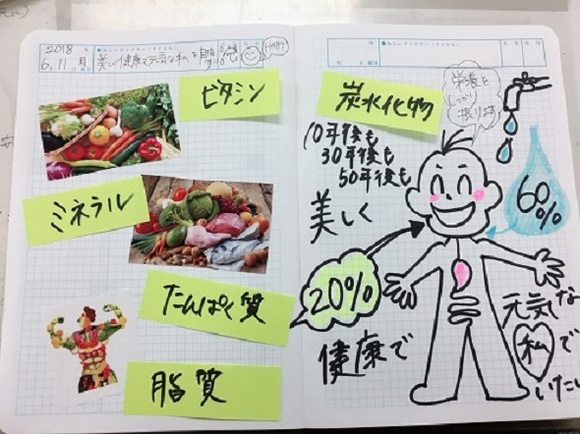 2018 年
6. 11 月
美しく健康で元気な私
Happy
ビタミン
ミネラル
たんぱく質
脂質
炭水化物
栄養を
しっかり
摂り
10年後も
30年後も
50年後も
美しく
60%
20%
健康で
元気な
私で
いたい